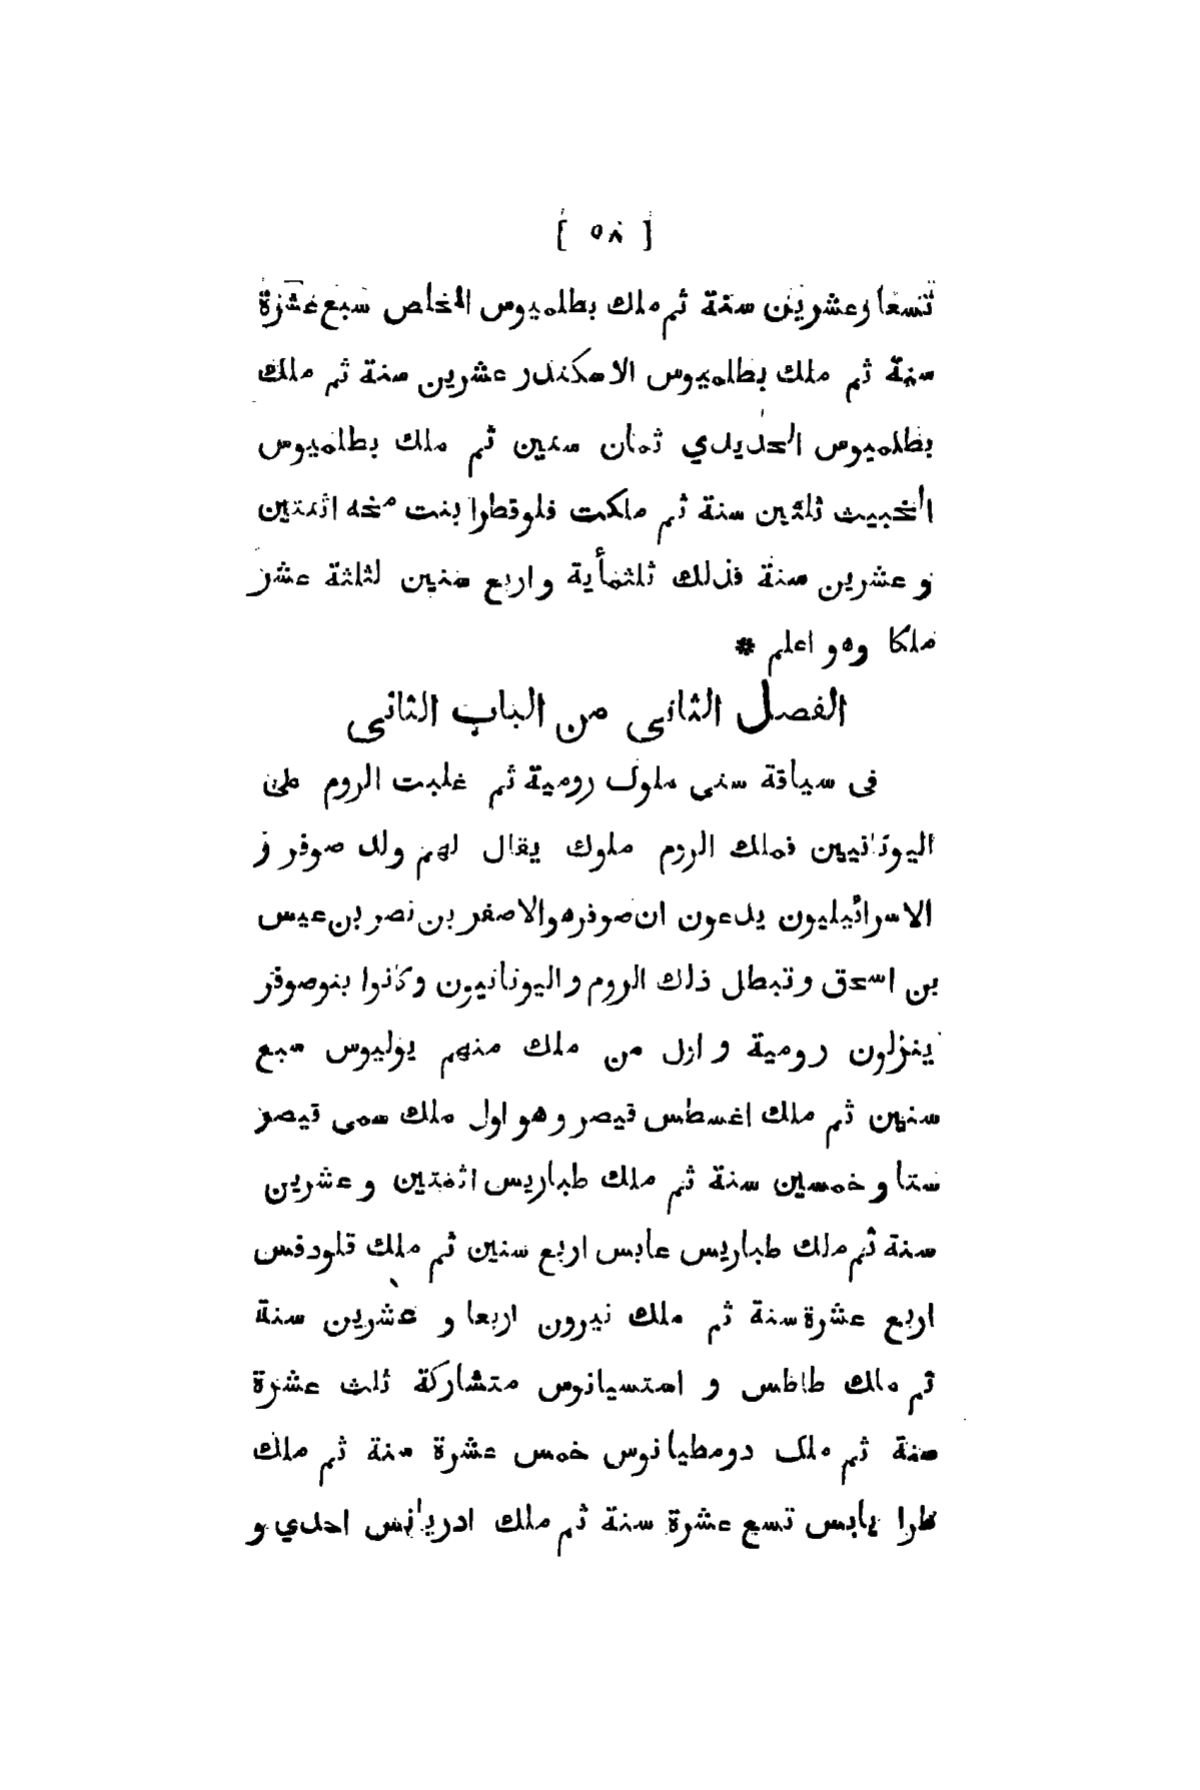 [ ٥٨ ]
تسعا وعشرين سنة ثم ملك بطلميوس المخلص سبع عشرة
سنة ثم ملك بطلميوس الاسكندر عشرين سنة ثم ملك
بطلميوس الحديدي ثمان سنين ثم ملك بطلميوس
الخبيث ثلثين سنة ثم ملكت فلوقطرا بنت مخه اثنتين
و عشرين سنة فذلك ثلثمأية و اربع سنين لثلثة عشر
ملكا وهو اعلم *
الفصل الثانى من الباب الثانى
فى سياقة سنى ملوك رومية ثم غلبت الروم على
اليونانيين فملك الروم ملوك يقال لهم ولد صوفر و
الاسرائيليون يدعون ان صوفر هو الاصفر بن نصر بن عيس
بن اسحق و تبطل ذلك الروم و اليونانيون و كانوا بنو صوفر
ينزلون رومية و اول من ملك منهم يوليوس سبع
سنين ثم ملك اغسطس قيصر وهو اول ملك سمى قيصر
ستا و خمسين سنة ثم ملك طباريس اثنتين و عشرين
سنة ثم ملك طباريس عابس اربع سنين ثم ملك قلودفس
اربع عشرة سنة ثم ملك نيرون اربعا و عشرين سنة
ثم ملك طاطس و استسيانوس متشاركة ثلث عشرة
سنة ثم ملك دومطيانوس خمس عشرة سنة ثم ملك
طرا يابس تسع عشرة سنة ثم ملك ادريانس احدي و